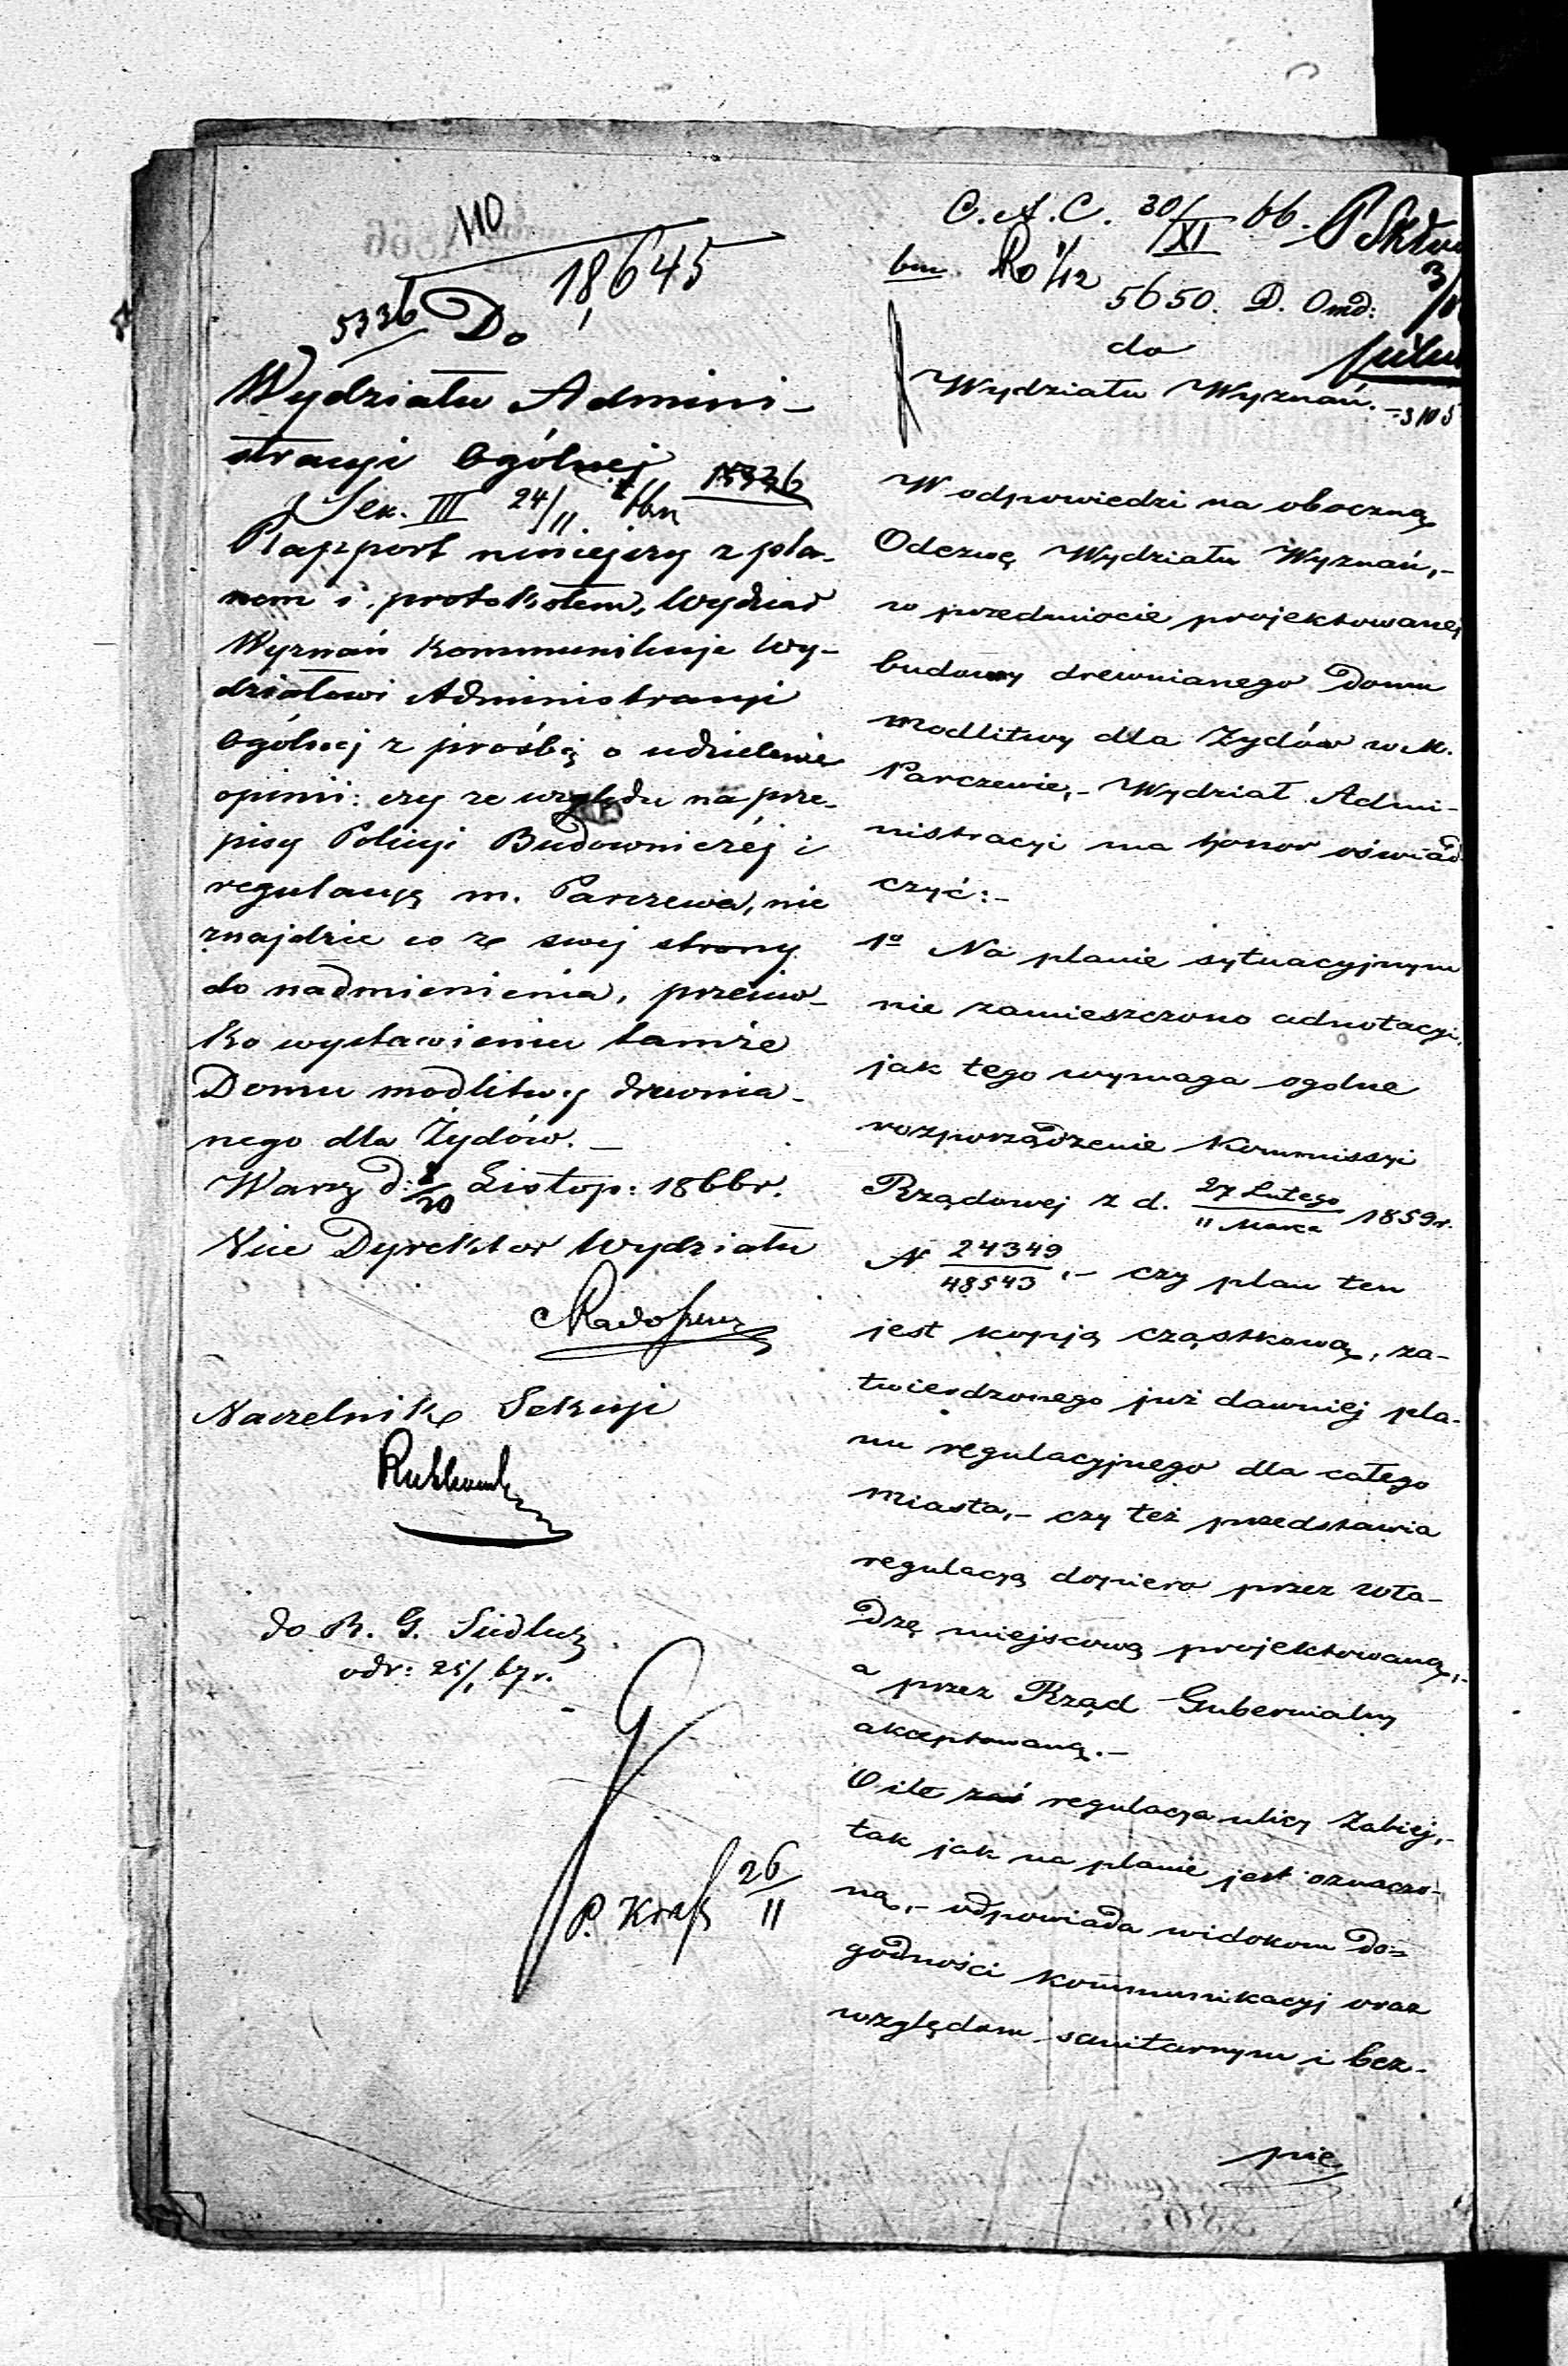 110
18,645
5336 Do
Wydziału Admini-
stracyi Ogólnej
Sek. III 24/11.
Rapport niniejszy z pla-
nem i protokółem, Wydział
Wyznań kommunikuje Wy-
działowi Administracyi
Ogólnej z prośbą o udzielenie
opinii: czy ze względu na prze-
pisy Policyi Budowniczéj i
regulacyą m. Parczewa, nie
znajdzie co ze swej strony
do nadmienienia, przeciw-
ko wystawieniu tamże
Domu modlitwy drewnia-
nego dla Żydów. _
Warsz d: 8/20 Listop: 1866r.
Vice Dyrektor Wydziału
Naczelnik Sekcyi
do R. G. Siedlec
odr: 25/1 67r.
26/II
C. A. C. 30/XI 66.
5650. D. Omd:
do
Wydziału Wyznań.
W odpowiedzi na oboczną
Odezwę Wydziału Wyznań,-
w przedmiocie projektowanej
budowy drewnianego Domu
modlitwy dla Żydów w M.
Parczewie,- Wydział Admi-
nistracyi ma honor oświad-
czyć:-
1º Na planie sytuacyjnym
nie zamieszczono adnotacyi,
jak tego wymaga ogolne
rozporządzenie Kommissyi
Rządowej z d. 27 Lutego/11 Marca 1859r.
N 24349/48543,- czy plan ten
jest kopją cząstkową, za-
twierdzonego już dawniej pla-
nu regulacyjnego dla całego
miasta,- czy też przedstawia
regulacją dopiero przez Wła-
dzę miejscową projektowaną,-
a przez Rząd Gubernialny
akceptowaną.-
O ile zaś regulacya ulicy Żabiej,-
tak jak na planie jest oznaczo-
ną,- odpowiada widokom do=
godności kommunikacyj oraz
względom sanitarnym i bez-
pie